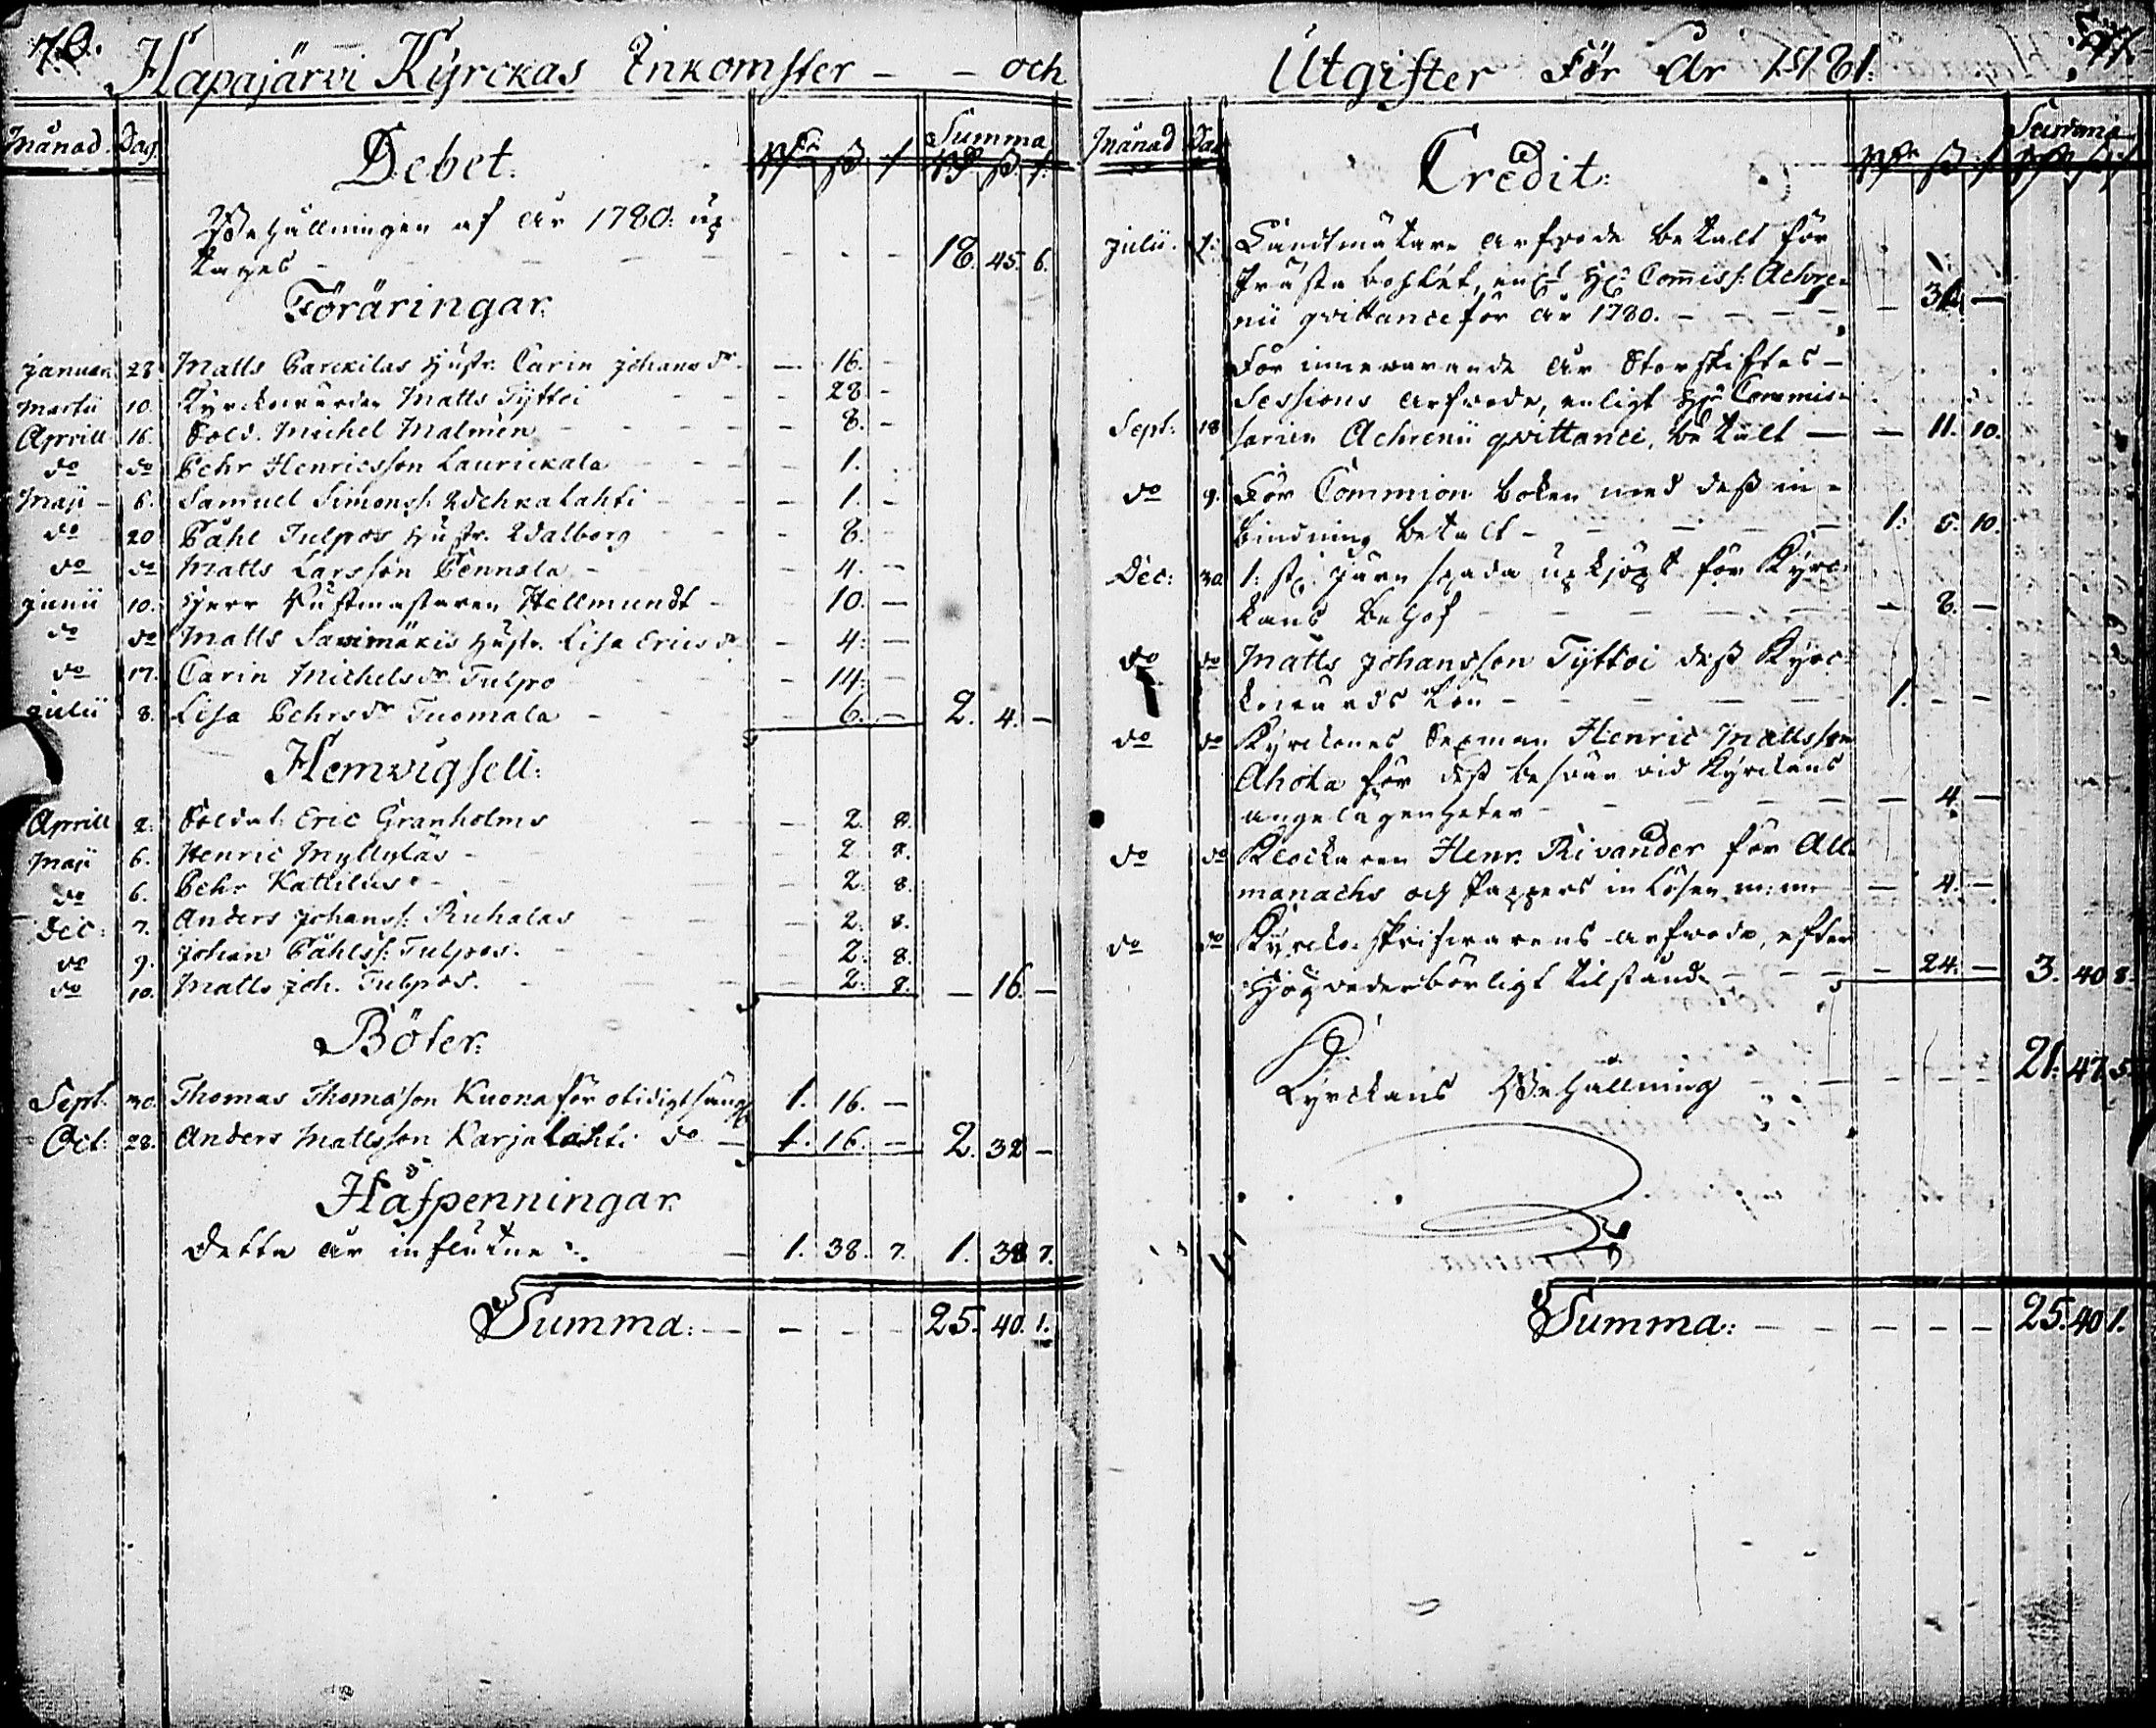 76.
Hapajärvi Kyrckas Inkomster - - och
Månad. Dag. Debet. Summa
Behållningen af År 1780: up
tages - - - - 18. 45. 6.
Föräringar.
Januar. 28 Matts Parckilas hustr. Carin Johansdr - 16. -
Martii 10. Kyrckowärden Matts Tyttoi - - - 28 -
Aprill 16. Sold. Michel Malmén - - - 8. -
do do Pehr Henricsson Laurickala - - - 1.
Maji - 6. Samuel Simonss. Wehkalahti - - - 1. -
do 20 Påhl Tulpos hustr. Walborg - - - 8. -
do do Matts Larsson Pennala - - - 4. -
Junii 10. Herr Hellmundt - - 10. -
do do Matts Savimäkis hustr. Lisa Ericsdr - 4. -
do 17. Carin Michelsdr Tulpo - - 14. -
Julii 8. Lisa Pehrsdr Tuomala - - - 6. - 2. 4. -
Hemvigsell:
Aprill 2. Soldat: Eric Granholms - - 2. 8.
Maji 6. Henric Myllyläs - - - 2. 8.
do 6. Pehr Kattilas - - - 2. 8.
Dec: 7. Anders Johanss. Ruhalas - - - 2. 8.
do 9. Johan Påhlss: Tulpos. - - 2. 8.
do 10. Matts Joh. Tulpos. - - - 2. 8. - 16. -
Böter:
Sept. 30. Thomas Thomasson Kuona för otidigt säng 1. 16. -
Oct: 28. Anders Mattsson Karjalahti do - 1. 16. - 2. 32 -
Håfpenningar.
Detta år influtne - 1. 38. 7. 1. 38 7.
Summa: - - - - 25. 40. 1.
77.
Utgifter För År 1781.
Månad Dag Credit: Summa
Julii. 1: Landtmätare arfwode betalt för
Prästa bohlet, enl. Hr Commiss. Achre-
nii qvittance för år 1780. - - - - - 36. -
För innewarande år Storskiftes -
Sessions arfwode, enligt Hr Commis-
Sept: 18 sarien Achrenii qvittance, betalt - - 11. 10.
do 9. För Commion boken med dess in-
bindning betalt - - - - 1: 8. 10.
Dec: 30 1: st. järn spada upkjöpt för Kyrc-
kans behof - - - - - 8. -
do do Matts Johansson Tyttoi dess Kyrc-
kowärds lön - - - - - 1. - -
do do Kyrckones Sexman Henric Mattsson
Ahola för dess beswär vid Kyrckans
angelägenheter - - - - - 4. -
do do Klockaren Henr. Rivander för All-
manachs och Pappers inlösen m: m: - - 4. -
do do Kyrcko skrifwarens arfwode, efter
Högvederbörligt tilstånd - - - - 24. - 3. 40 8.
Kyrckans Behållning - - - - - - 21. 47. 5.
Summa: - - - - - 25. 40 1.